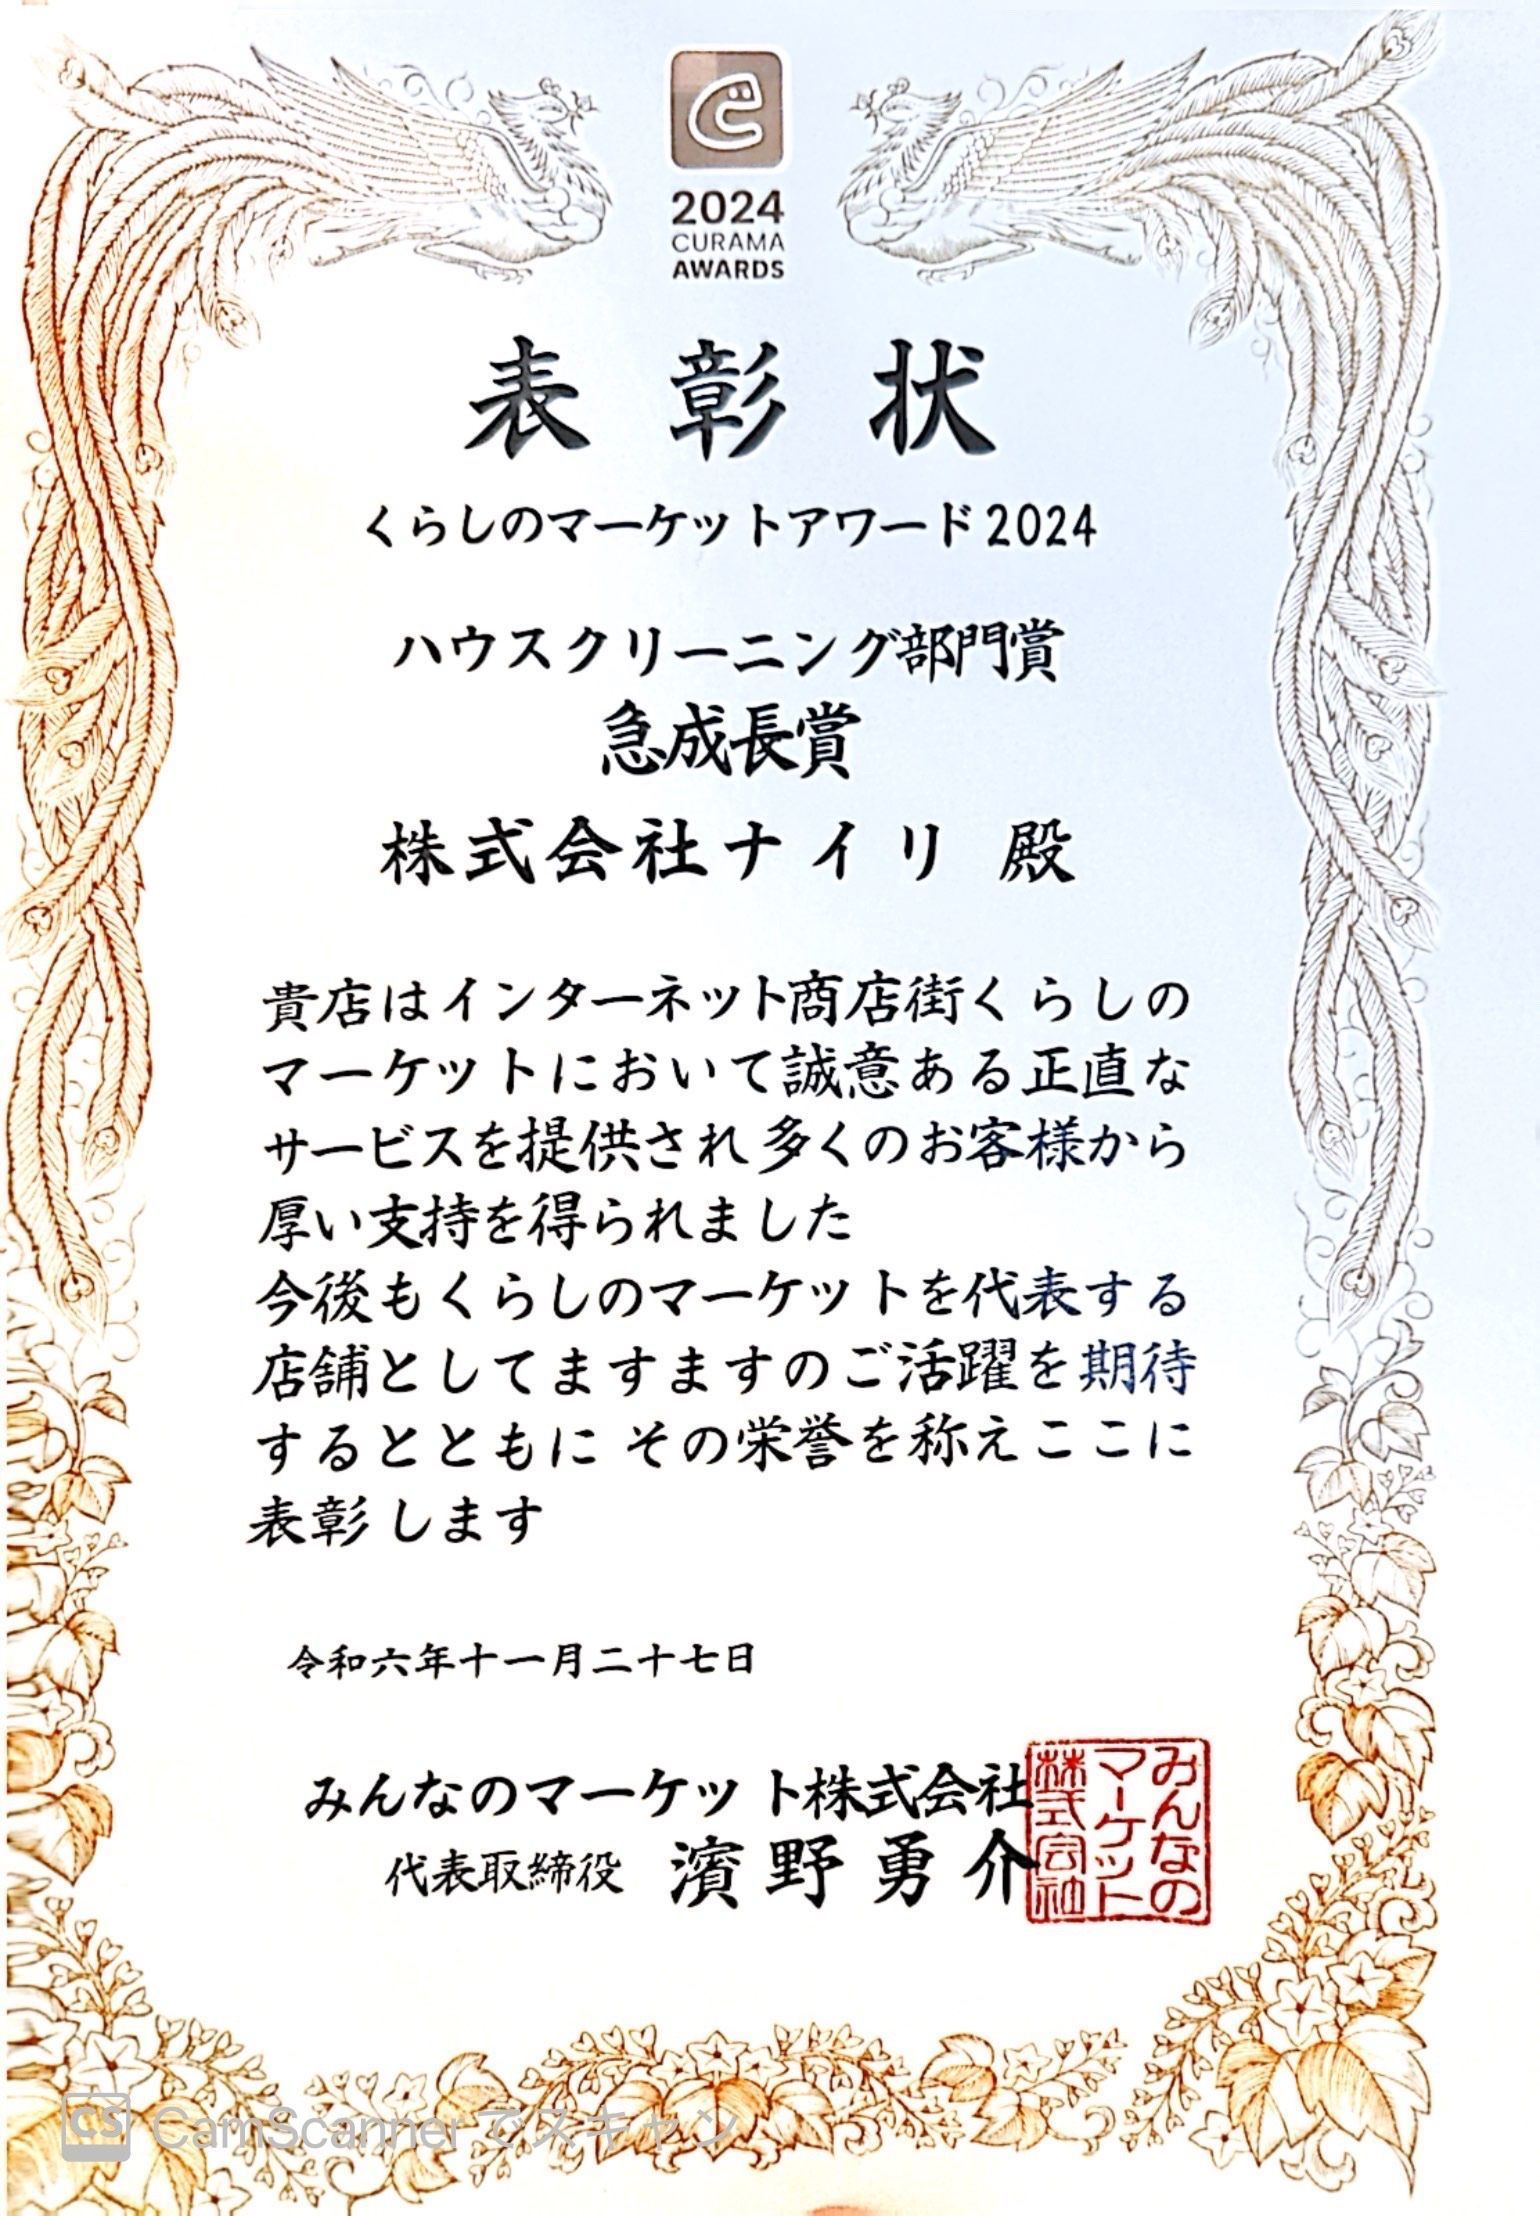 2024
CURAMA
AWARDS
表彰状
くらしのマーケットアワード2024
ハウスクリーニング部門賞
急成長賞
株式会社ナイリ 殿
貴店はインターネット商店街くらしの
マーケットにおいて誠意ある正直な
サービスを提供され多くのお客様から
厚い支持を得られました
今後もくらしのマーケットを代表する
店舗としてますますのご活躍を期待
するとともに その栄誉を称えここに
表彰します
令和六年十一月二十七日
みんなのマーケット株式会社
代表取締役 濱野勇介
みんなの
マーケット
株式会社
CS CamScannerでスキャン